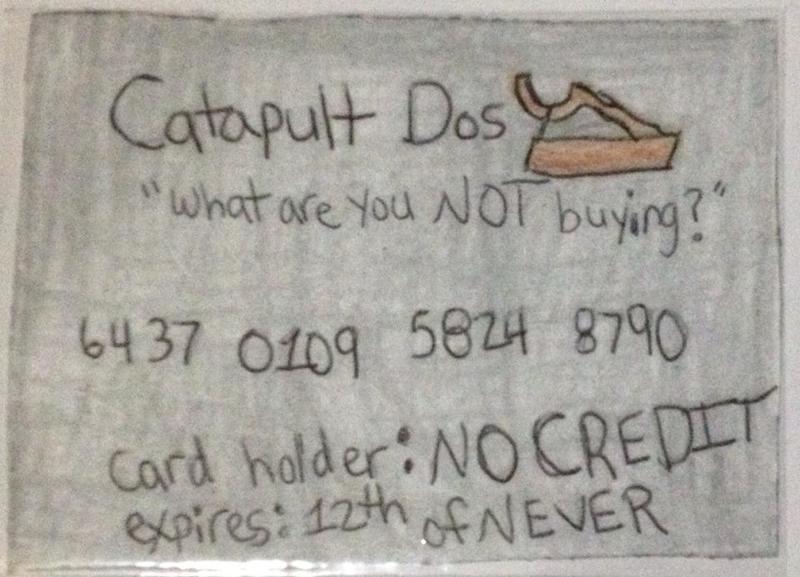 Catapult Dos
"What are you NOT buying?"
6437 0109 5824 8790
card holder: NO CREDIT
expires: 12th of NEVER